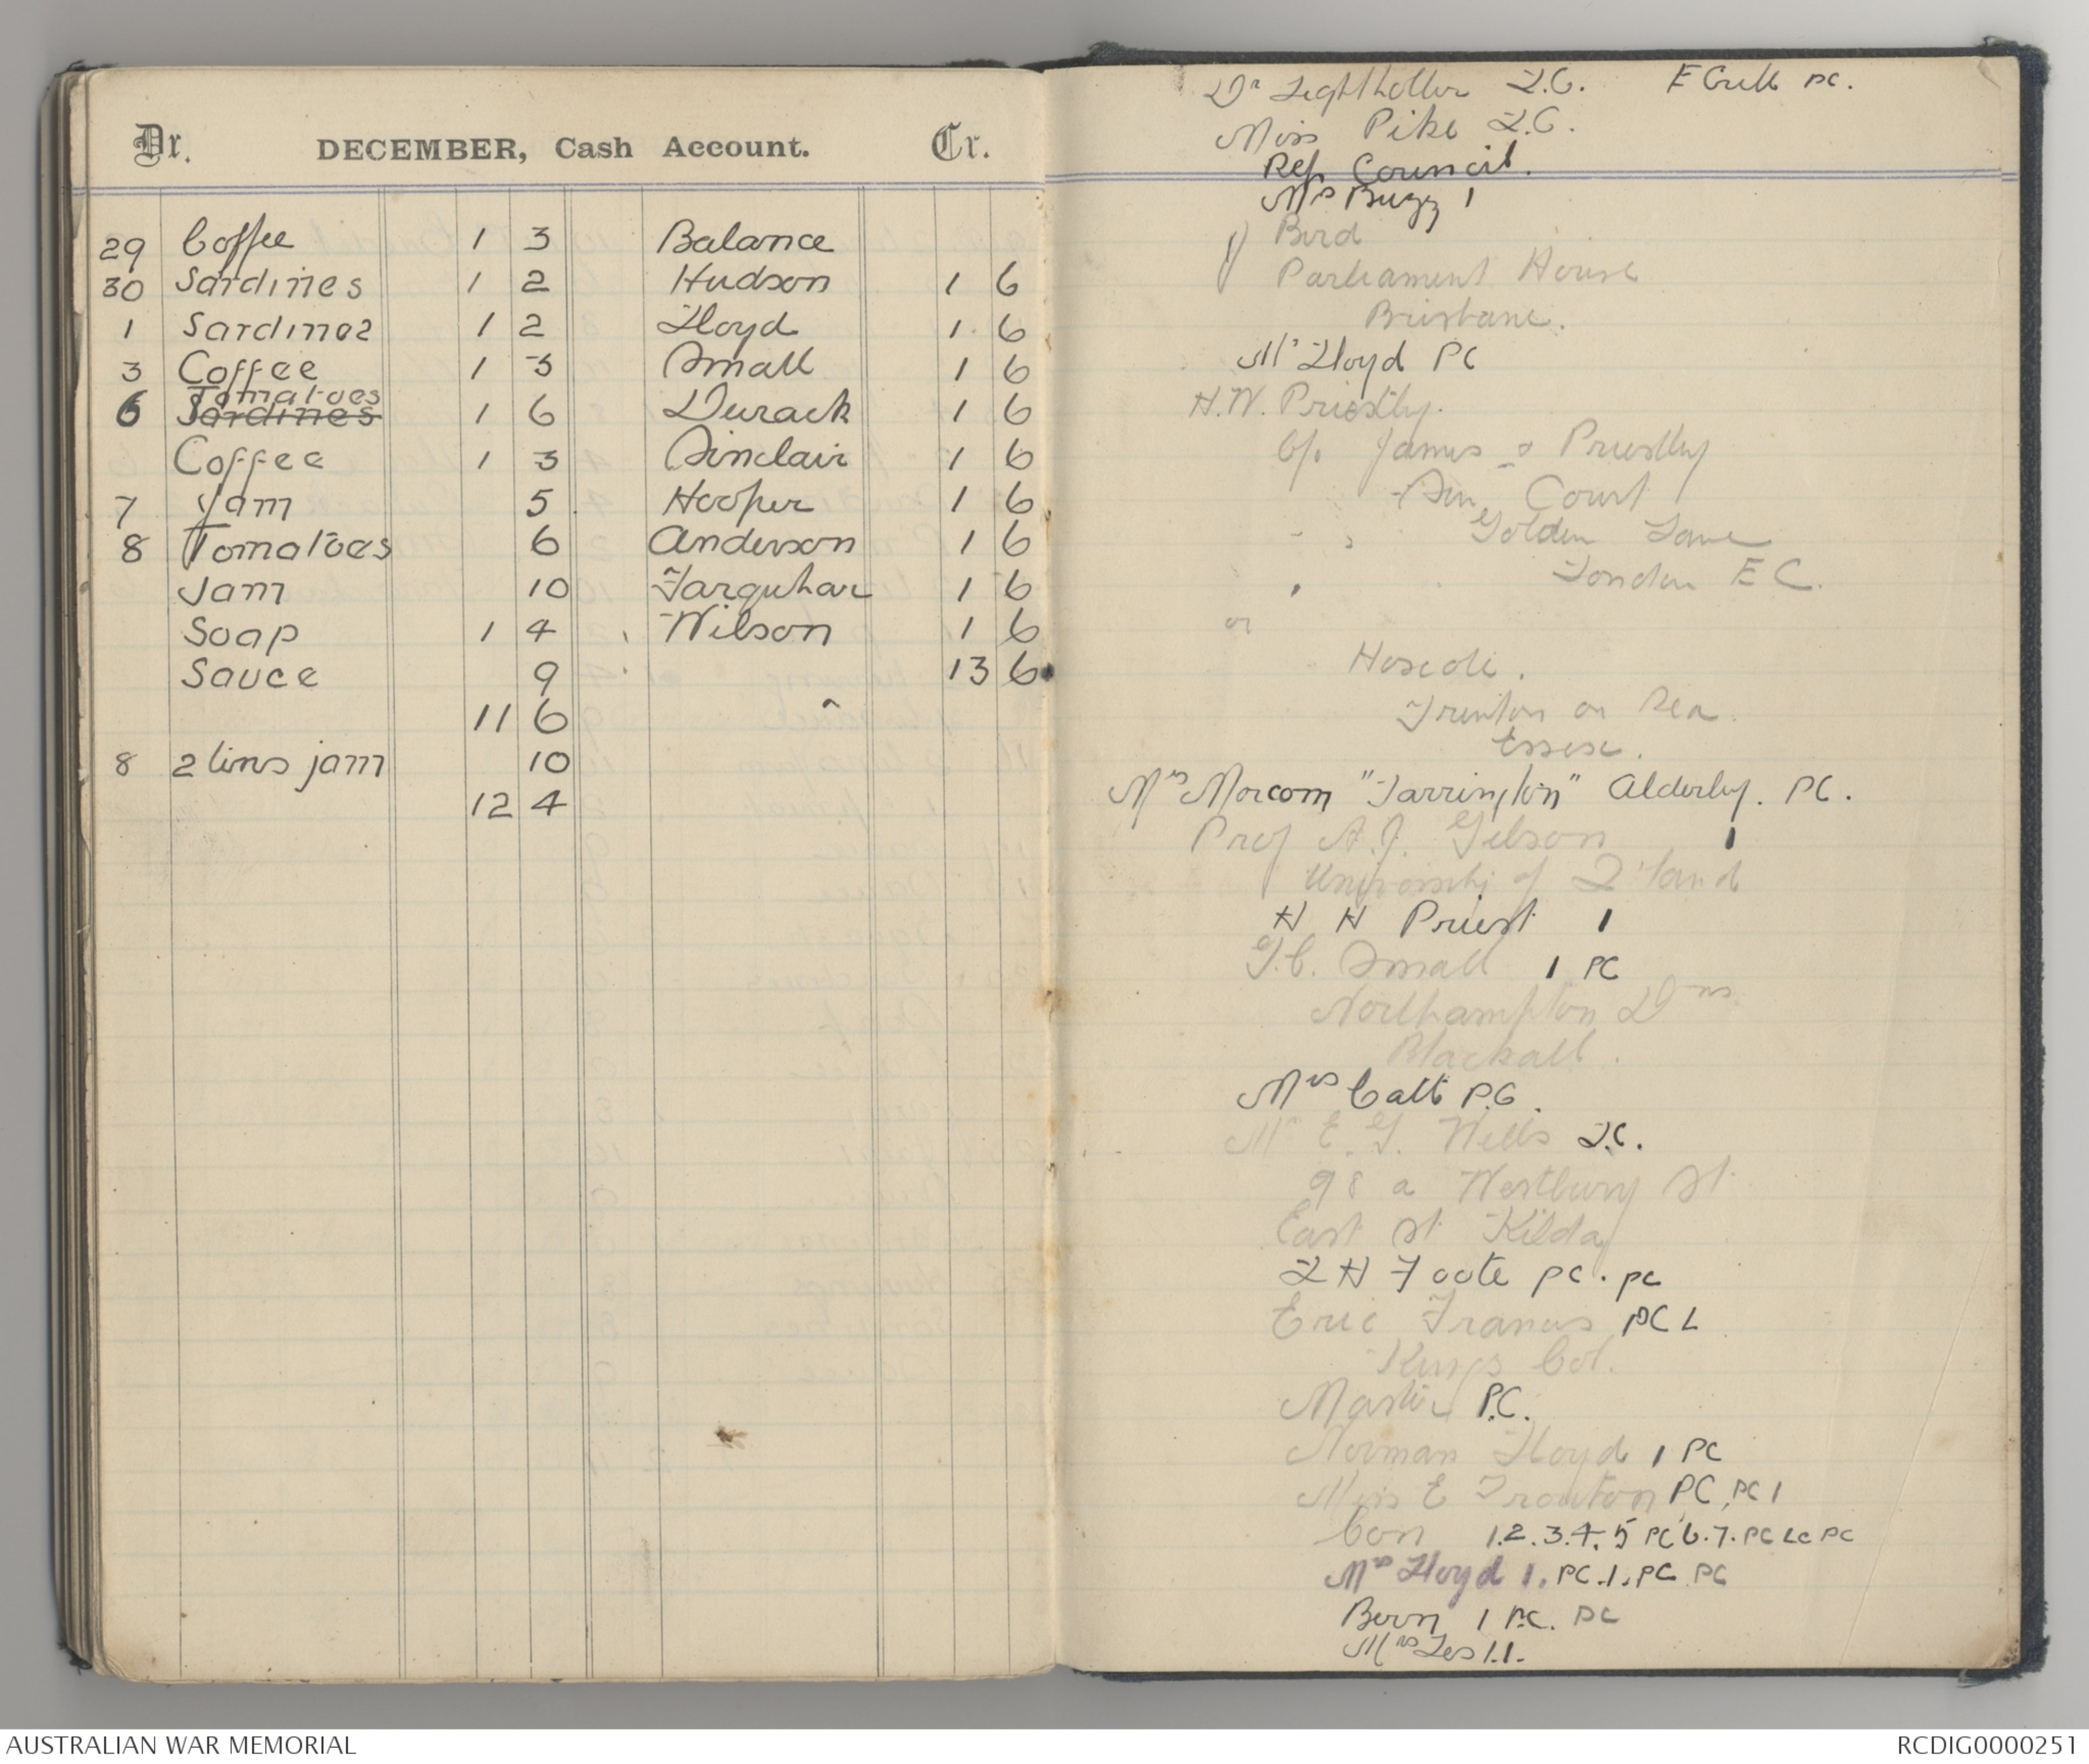 Dr. DECEMBER, Cash Account. Cr.
29 Coffee 1 3 Balance
30 Sardines 1 2 Hudson 1 6
1 Sardines 1 2 Lloyd 1 6
3 Coffee 1 3 Small 1 6
Tomatoes
6 Sardines 1 6 Durack 1 6
Coffee 1 3 Sinclair 1 6
7 Jam 5 Hooper 1 6
8 Tomatoes 6 Anderson 1 6
Jam 10 Farquhar 1 6
Soap 1 4 Wilson 1 6
Sauce 9 13 6
11 6
8 2 tins jam 10
12 4
Dr Lightholler L.C. E Crell PC.
Miss Pike L.C.
Ref Council.
Mrs Buzz 1
Bird
Parliament House
Brisbane.
Mr Lloyd PC
H.W. Priestly.
C/o James & Priestly
Sun Court
Golden Lane
London E C.
or
Frinton on Sea
Essex.
Mrs Morcom "Tarrington" Alderley. PC.
Prof A.J. Gibson 1
University of Q'land
H H Priest 1
G.C. Small 1 PC
Northampton Dns
Blackall.
Mrs Catt P.C.
Mr E. G. Wells L.C.
98 a Westbury St
East St Kilda
L H Foote PC. PC
Eric Francis PC L
Kings Col.
Martin P.C.
Norman Lloyd 1 PC
Miss E Trouton PC, PC 1
Con 1.2.3.4.5 PC 6.7. PC LC PC
Mrs Lloyd 1. PC.1. PC PC
Bern 1 P.C. PC
Mrs Les 1.1.
AUSTRALIAN WAR MEMORIAL RCDIG0000251